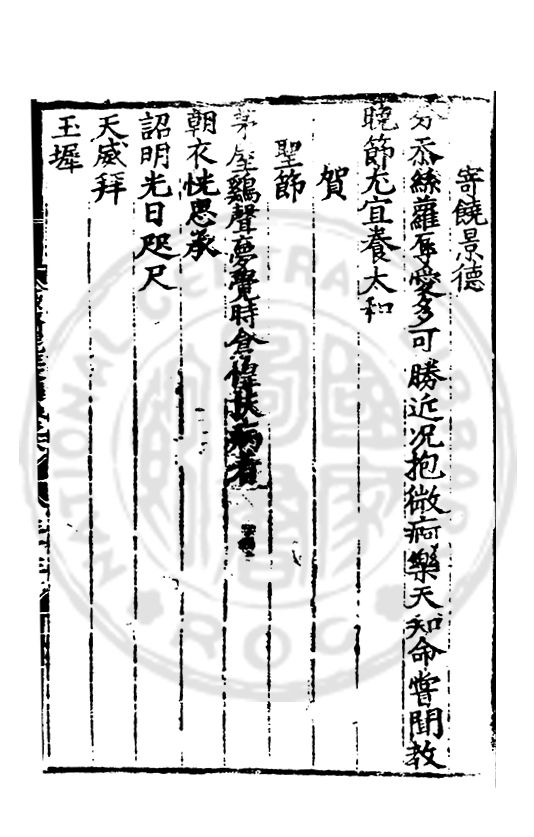 寄饒景德
分忝絲蘿辱愛多可勝近况抱微痾樂天知命嘗聞教
晚節尤宜養太和
賀
聖節
茅屋鷄聲夢覺時倉偟扶病着
朝衣恍思承
詔明光日咫尺
天威拜
玉墀